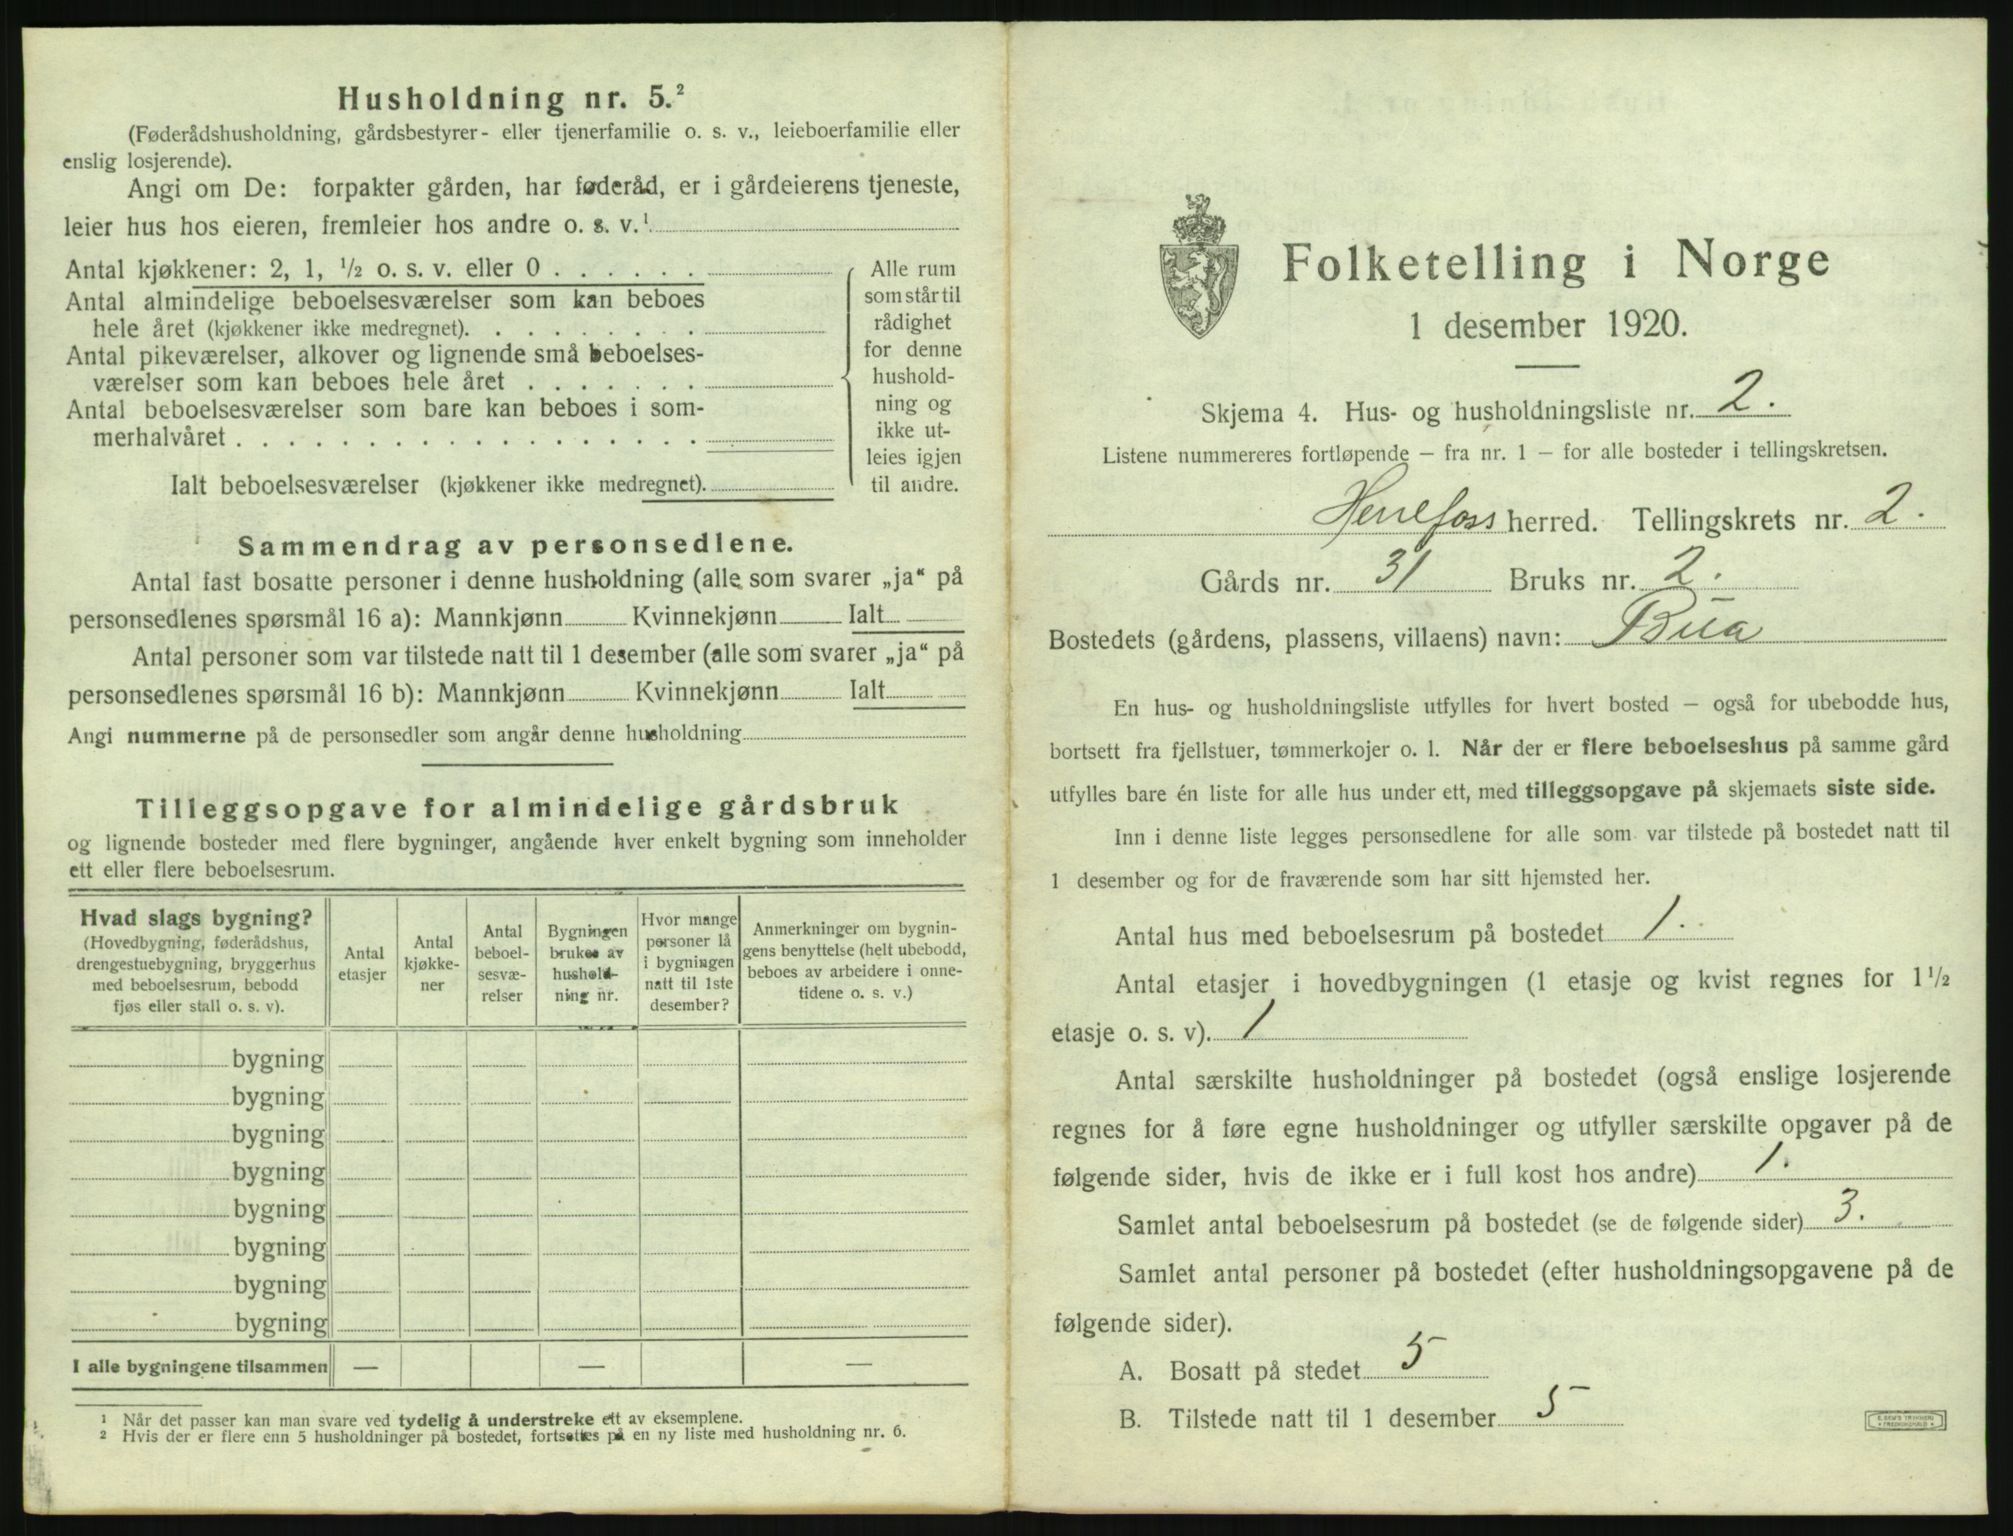 Husholdning nr. 5.²
(Føderådshusholdning, gårdsbestyrer- eller tjenerfamilie o. s. v., leieboerfamilie eller
enslig losjerende).
Angi om De: forpakter gården, har føderåd, er i gårdeierens tjeneste,
leier hus hos eieren, fremleier hos andre o. s. v.¹
Antal kjøkkener: 2, 1, ½ o. s. v. eller 0 . . . . . .
Antal almindelige beboelsesværelser som kan beboes
hele året (kjøkkener ikke medregnet). . . . . . . . .
Antal pikeværelser, alkover og lignende små beboelses-
værelser som kan beboes hele året . . . . . . .
Antal beboelsesværelser som bare kan beboes i som-
merhalvåret . . . . . . . . . . . . . . . . . .
Ialt beboelsesværelser (kjøkkener ikke medregnet).
Alle rum
som står til
rådighet
for denne
hushold-
ning og
ikke ut-
leies igjen
til andre.
Sammendrag av personsedlene.
Antal fast bosatte personer i denne husholdning (alle som svarer „ja“ på
personsedlenes spørsmål 16 a): Mannkjønn Kvinnekjønn Ialt
Antal personer som var tilstede natt til 1 desember (alle som svarer „ja“ på
personsedlenes spørsmål 16 b): Mannkjønn Kvinnekjønn Ialt
Angi nummerne på de personsedler som angår denne husholdning
Tilleggsopgave for almindelige gårdsbruk
og lignende bosteder med flere bygninger, angående hver enkelt bygning som inneholder
ett eller flere beboelsesrum.
Hvad slags bygning?
(Hovedbygning, føderådshus,
drengestuebygning, bryggerhus
med beboelsesrum, bebodd
fjøs eller stall o. s. v).
Antal
etasjer
Antal
kjøkke-
ner
Antal
beboel-
sesvæ-
relser
Bygningen
brukes av
hushold-
ning nr.
Hvor mange
personer lå
i bygningen
natt til 1ste
desember?
Anmerkninger om bygnin-
gens benyttelse (helt ubebodd,
beboes av arbeidere i onne-
tidene o. s. v.)
bygning
bygning
bygning
bygning
bygning
bygning
bygning
bygning
I alle bygningene tilsammen — — —
¹ Når det passer kan man svare ved tydelig å understreke ett av eksemplene.
² Hvis der er flere enn 5 husholdninger på bostedet, fortsettes på en ny liste med husholdning nr. 6.
Folketelling i Norge
1 desember 1920.
Skjema 4. Hus- og husholdningsliste nr. 2.
Listene nummereres fortløpende – fra nr. 1 – for alle bosteder i tellingskretsen.
Herefoss herred. Tellingskrets nr. 2.
Gårds nr. 31 Bruks nr. 2.
Bostedets (gårdens, plassens, villaens) navn: Bua
En hus- og husholdningsliste utfylles for hvert bosted – også for ubebodde hus,
bortsett fra fjellstuer, tømmerkojer o. l. Når der er flere beboelseshus på samme gård
utfylles bare én liste for alle hus under ett, med tilleggsopgave på skjemaets siste side.
Inn i denne liste legges personsedlene for alle som var tilstede på bostedet natt til
1 desember og for de fraværende som har sitt hjemsted her.
Antal hus med beboelsesrum på bostedet 1.
Antal etasjer i hovedbygningen (1 etasje og kvist regnes for 1½
etasje o. s. v). 1
Antal særskilte husholdninger på bostedet (også enslige losjerende
regnes for å føre egne husholdninger og utfyller særskilte opgaver på de
følgende sider, hvis de ikke er i full kost hos andre) 1.
Samlet antal beboelsesrum på bostedet (se de følgende sider) 3.
Samlet antal personer på bostedet (efter husholdningsopgavene på de
følgende sider).
A. Bosatt på stedet 5
B. Tilstede natt til 1 desember 5